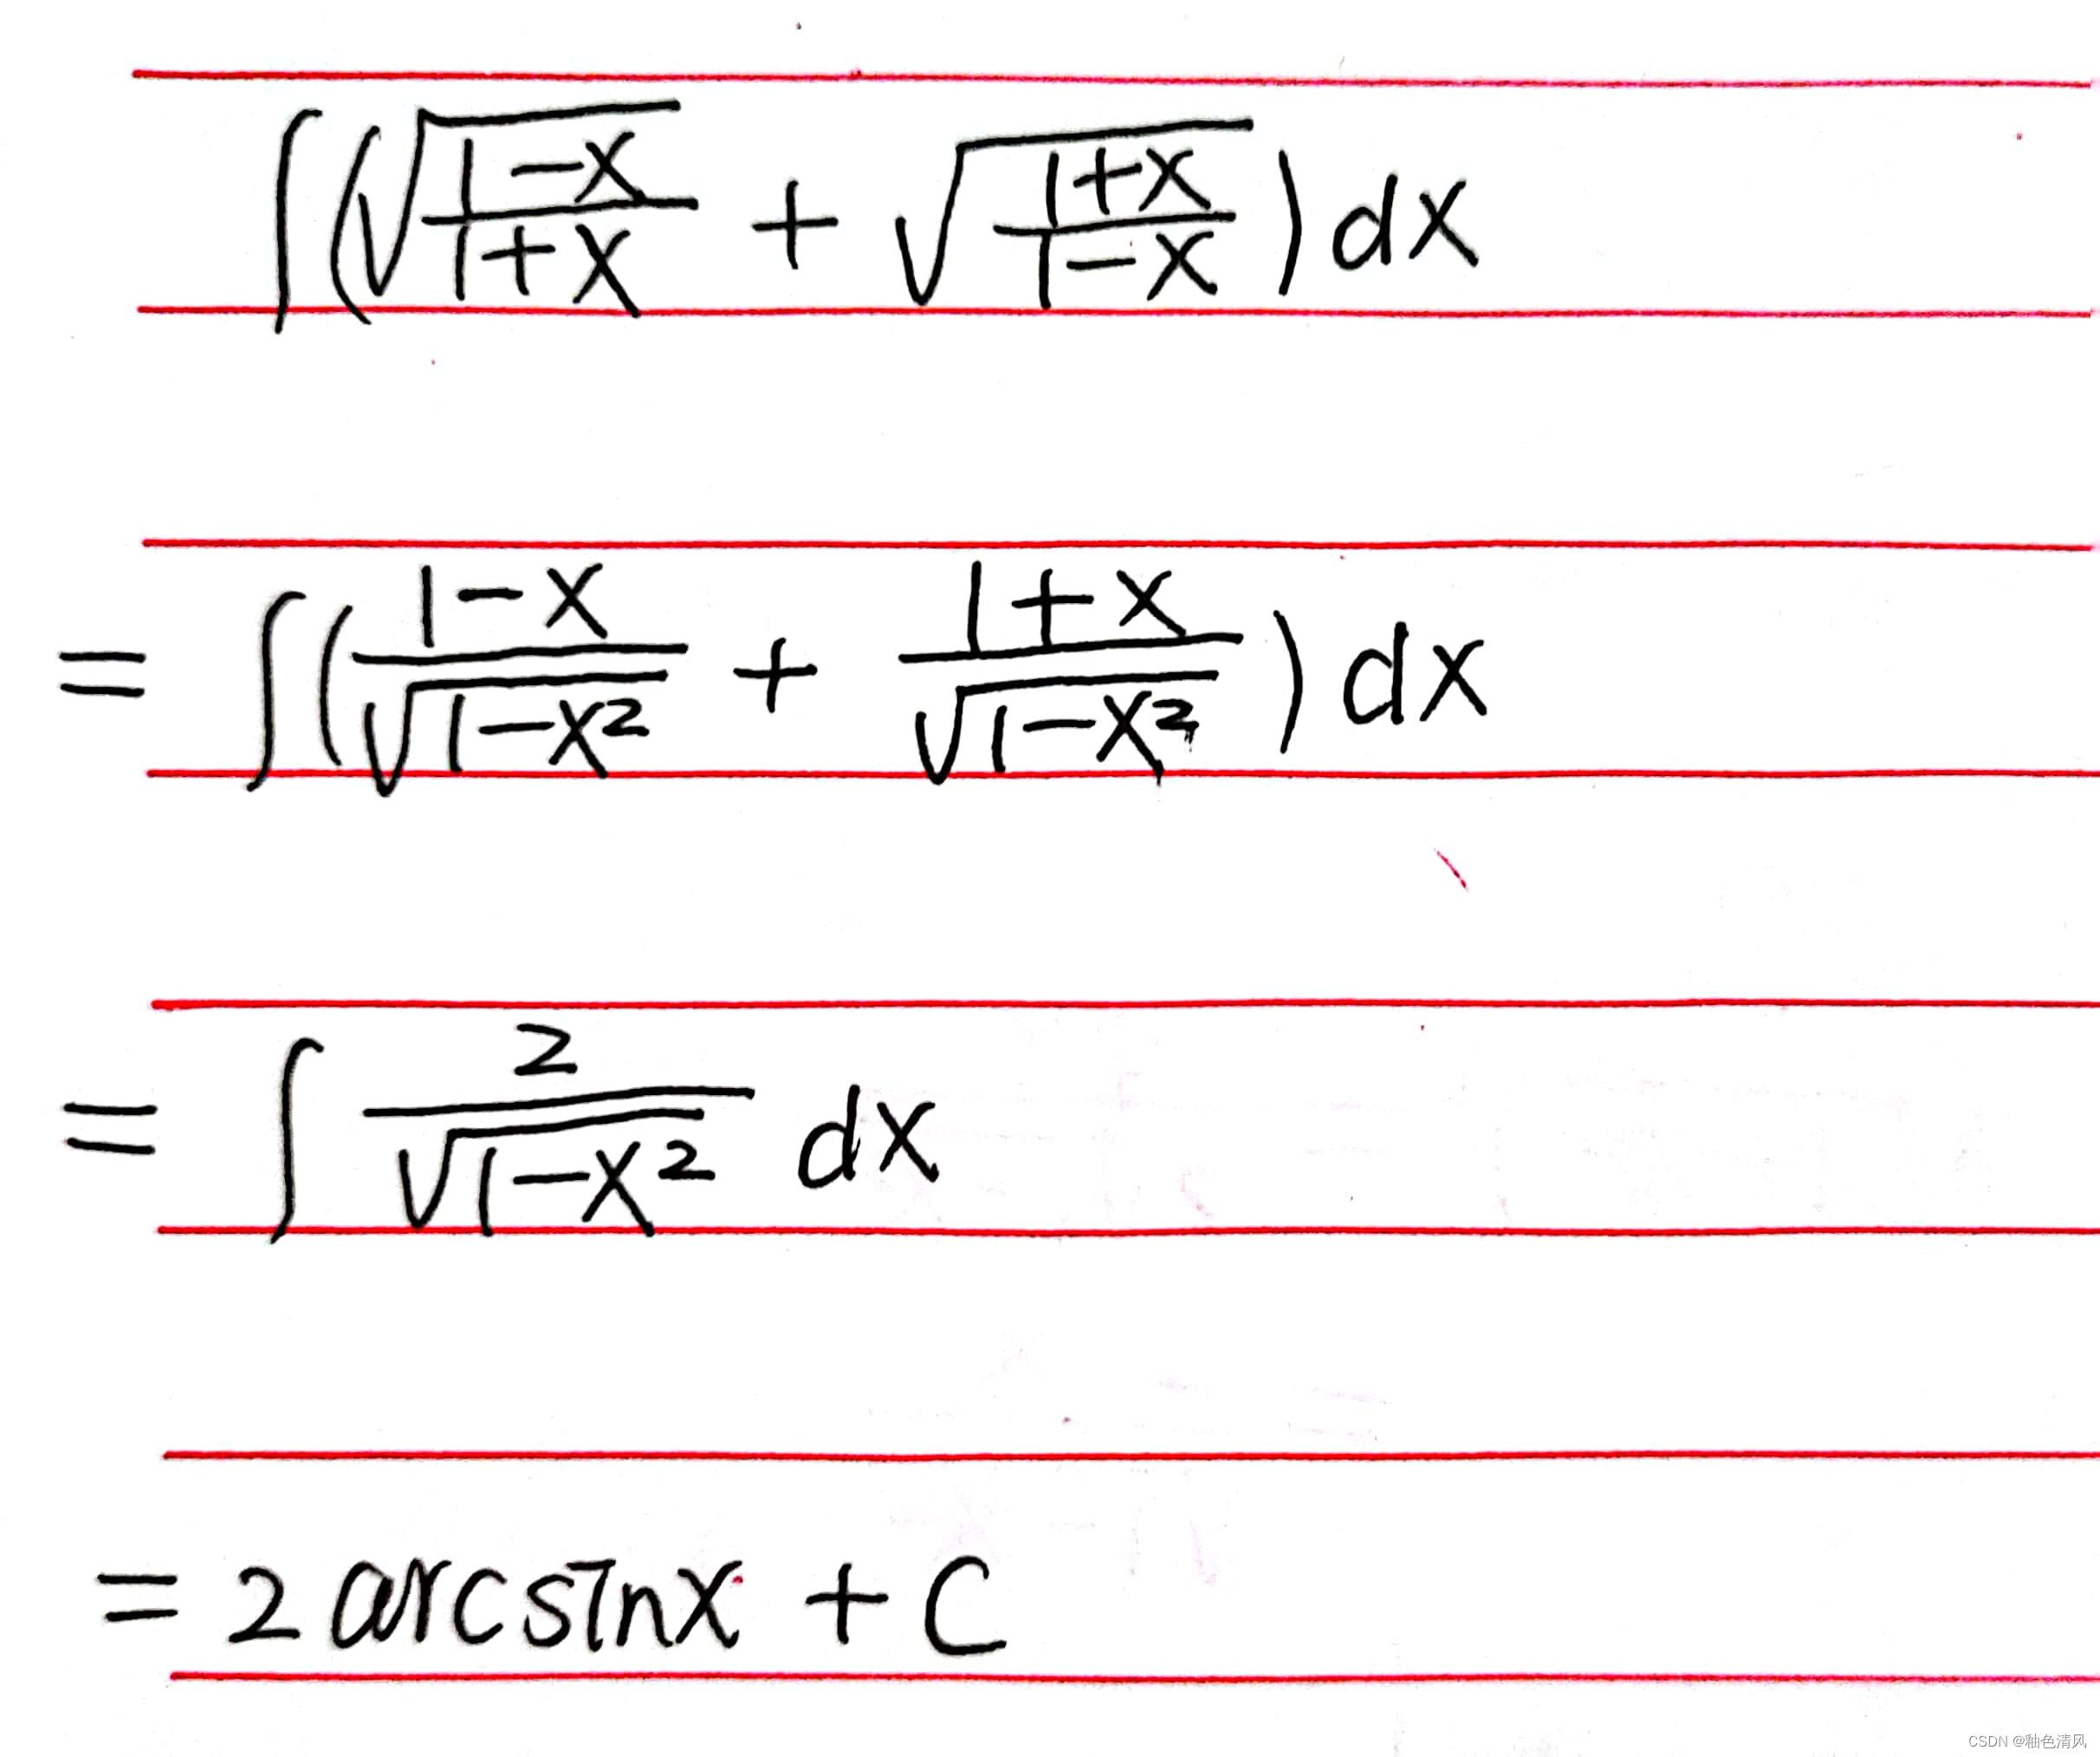 ∫(√((1-x)/(1+x)) + √((1+x)/(1-x)))dx
= ∫((1-x)/√(1-x²) + (1+x)/√(1-x²))dx
= ∫ 2/√(1-x²) dx
= 2 arcsinx + C
CSDN @釉色清风